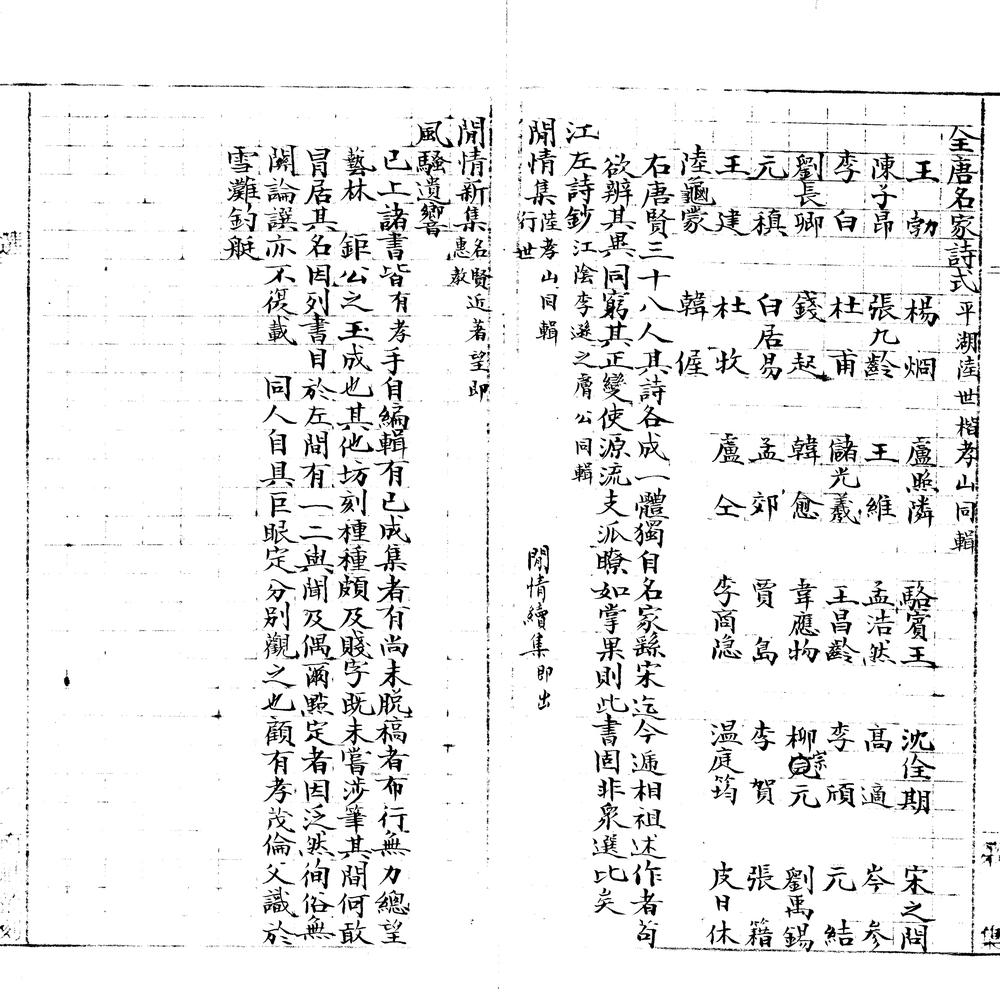 全唐名家詩式 平湖陸世楷孝山同輯
王勃 楊烱 盧照隣 駱賓王 沈佺期 宋之問
陳子昂 張九齡 王維 孟浩然 高適 岑參
李白 杜甫 儲光羲 王昌齡 李頎 元結
劉長卿 錢起 韓愈 韋應物 柳宗元 劉禹錫
元稹 白居易 孟郊 賈島 李賀 張籍
王建 杜牧 盧仝 李商隐 温庭筠 皮日休
陸龜蒙 韓偓
右唐賢三十八人其詩各成一體獨自名家繇宋迄今遞相祖述作者苟
欲辨其異同窮其正變使源流支派瞭如掌果則此書固非衆選比矣
江左詩鈔 江陰李遜之膚公同輯
閒情集 陸孝山同輯 行世 閒情續集 即出
閒情新集 名賢近著望即惠教
風騷遺響
已上諸書皆有孝手自編輯有已成集者有尚未脱稿者布行無力總望
藝林 鉅公之玉成也其他坊刻種種頗及賤字既未嘗涉筆其間何敢
冒居其名因列書目於左間有一二與聞及偶爾點定者因泛然侚俗無
關論譔亦不復載 同人自具巨眼定分別觀之也顧有孝茂倫父識於
雪灘釣艇